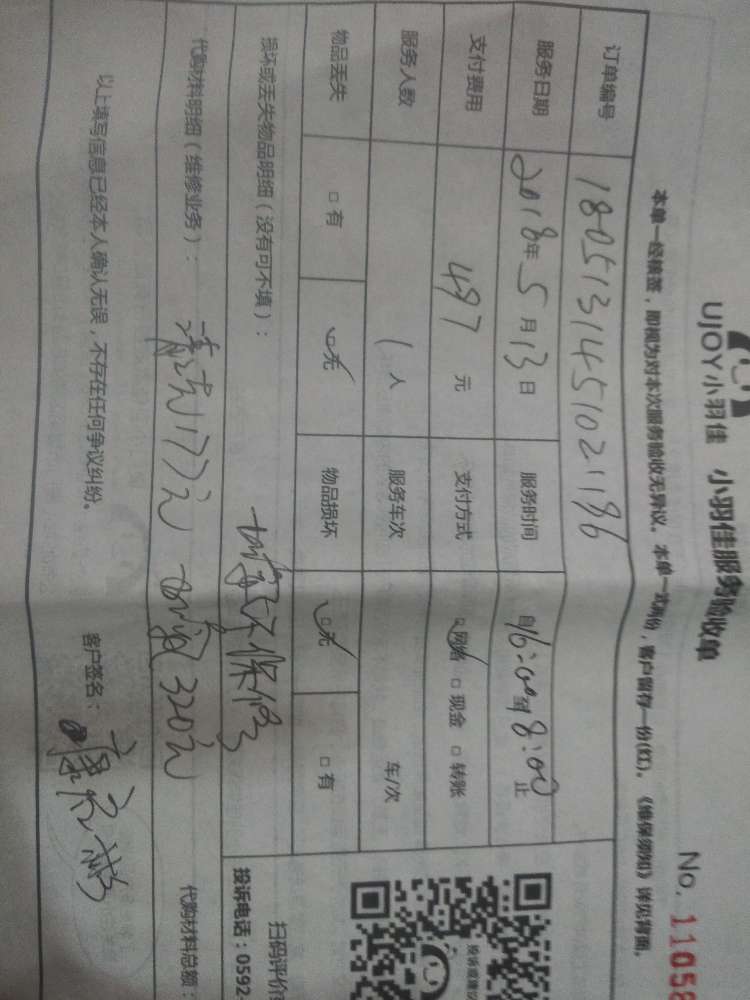 UJOY小羽佳 小羽佳服务验收单
No. 11058
本单一经核签，即视为对本次服务验收无异议。本单一式两份，客户留存一份(红)。《维保须知》详见背面。
订单编号 1805131451021186
服务日期 2018年5月13日 服务时间 自16:00到18:00止
支付费用 497元 支付方式 □网络 □现金 □转账
服务人数 1人 服务车次 车/次
物品丢失 □有 □无 物品损坏 □无 □有
损坏或丢失物品明细（没有可不填）：
代购材料明细（维修业务）： 清洗177元 320元
代购材料总额：
以上填写信息已经本人确认无误，不存在任何争议纠纷。
客户签名：
扫码评价
投诉电话：0592